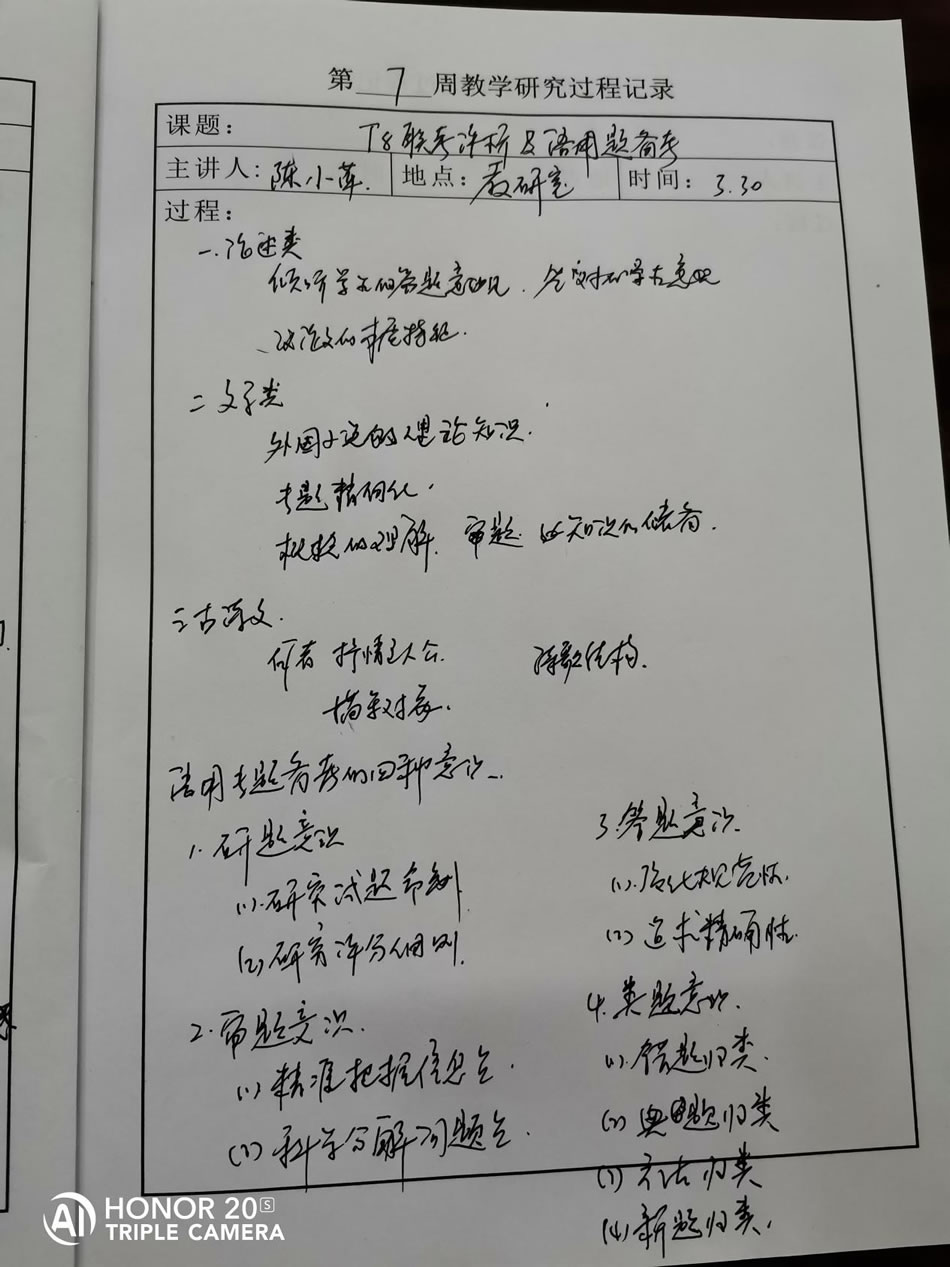 第 7 周教学研究过程记录
课题： T8联考评析及语用题备考
主讲人: 陈小萍. 地点： 教研室 时间： 3.30
过程：
一.论述类
倾听学生的答题意见.
议论文的本质特征.
二 文学类
外国小说的理论知识.
专题精细化.
概括的理解. 审题 知识的储备.
三古诗文.
何者 抒情主人公. 诗歌结构.
描写对象.
语用专题备考的四种意识.
1. 研题意识
(1).研究试题命制
(2)研究评分细则.
2. 审题意识.
(1) 精准把握信息点.
(2) 科学分解问题点.
3.答题意识.
(1).强化规范性.
(2) 追求精确性.
4. 类题意识.
(1).错题归类.
(2) 典题归类
(3) 方法归类
(4) 新题归类.
AI HONOR 20S
TRIPLE CAMERA